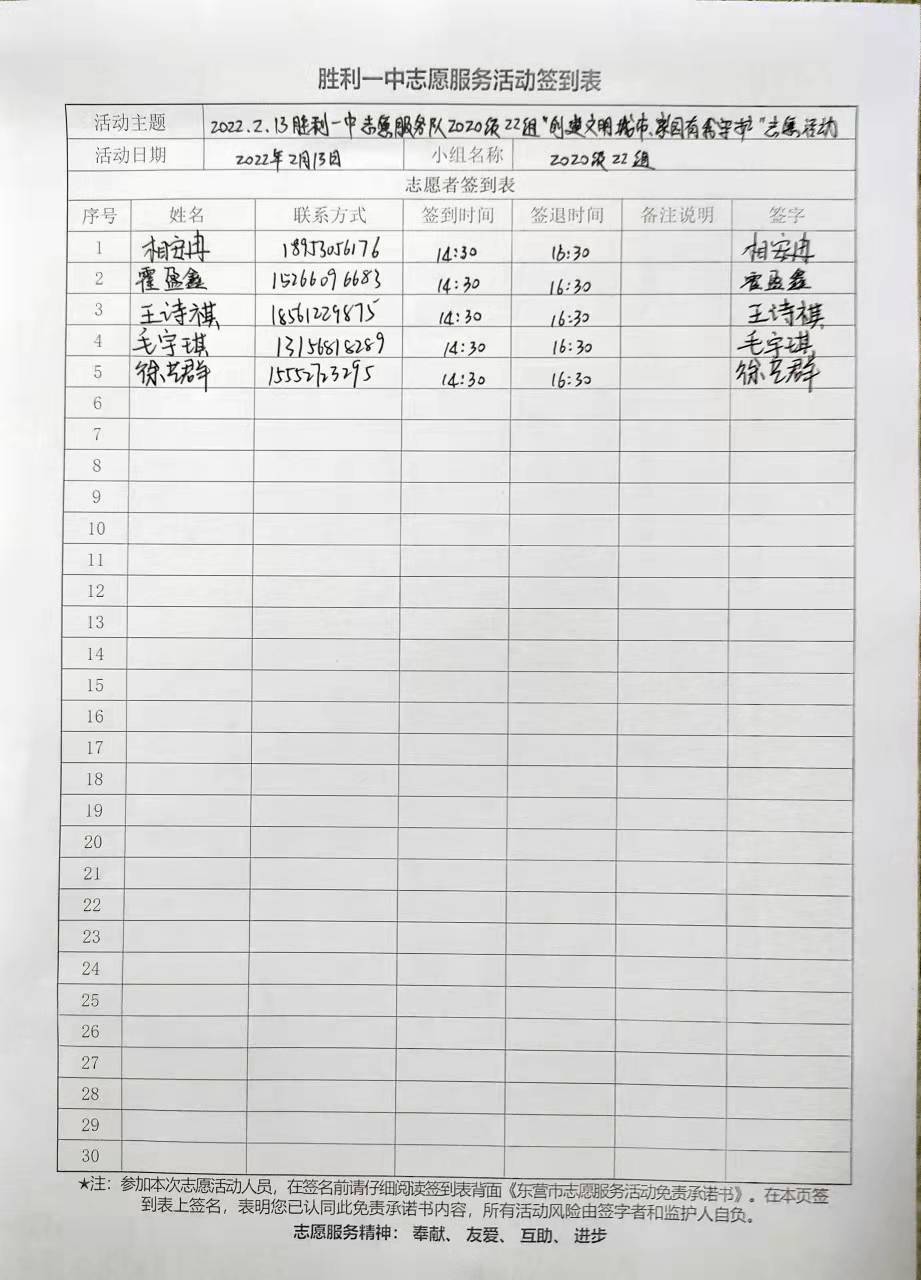 胜利一中志愿服务活动签到表
活动主题 2022.2.13胜利一中志愿服务队2020级22组"创建文明城市,家园有我守护"志愿活动
活动日期 2022年2月13日 小组名称 2020级22组
志愿者签到表
序号 姓名 联系方式 签到时间 签退时间 备注说明 签字
1 相安冉 18953056176 14:30 16:30 相安冉
2 霍盈鑫 15266096683 14:30 16:30 霍盈鑫
3 王诗祺 18561229875 14:30 16:30 王诗祺
4 毛宇琪 13156818289 14:30 16:30 毛宇琪
5 徐艺群 15552723295 14:30 16:30 徐艺群
6
7
8
9
10
11
12
13
14
15
16
17
18
19
20
21
22
23
24
25
26
27
28
29
30
★注:参加本次志愿活动人员,在签名前请仔细阅读签到表背面《东营市志愿服务活动免责承诺书》。在本页签
到表上签名,表明您已认同此免责承诺书内容,所有活动风险由签字者和监护人自负。
志愿服务精神: 奉献、 友爱、 互助、 进步